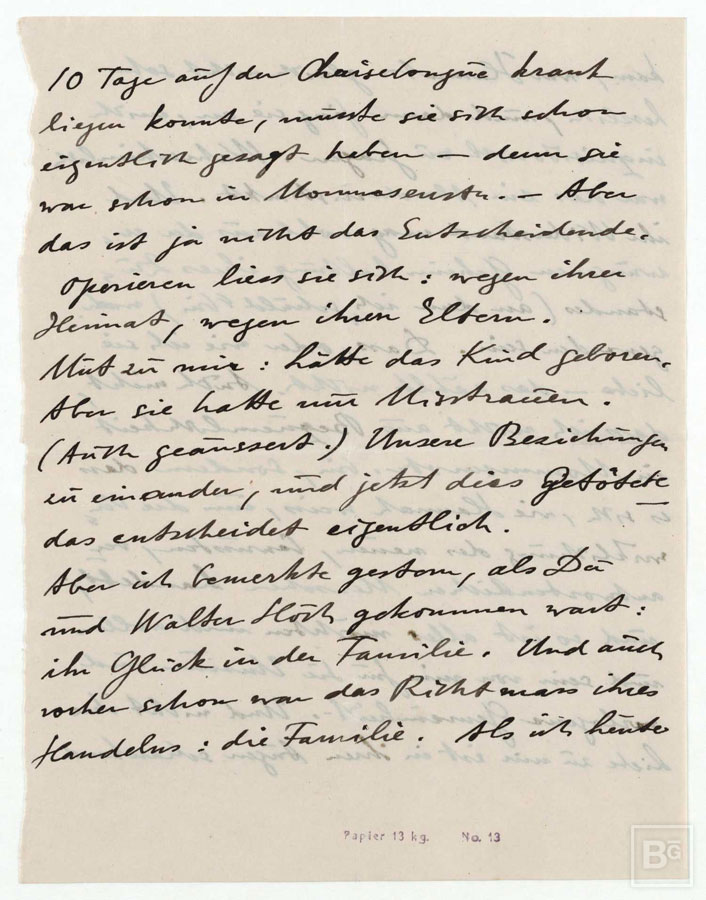 10 Tage auf der Chaiselongue krank
liegen konnte, musste sie sich schon
eigentlich gesagt haben – denn sie
war schon in Mommsenstr. – Aber
das ist ja nicht das Entscheidende.
Operieren liess sie sich: wegen ihrer
Heimat, wegen ihren Eltern.
Mut zu mir: hätte das Kind geboren.
Aber sie hatte nur Misstrauen.
(Auch geäussert.) Unsere Beziehungen
zu einander, und jetzt dies Getötete
das entscheidet eigentlich.
Aber ich bemerkte gestern, als Du
und Walter Höch gekommen wart:
ihr Glück in der Familie. Und auch
vorher schon war das Richtmass ihres
Handelns: die Familie. Als ich heute
Papier 13 kg. No. 13
BG